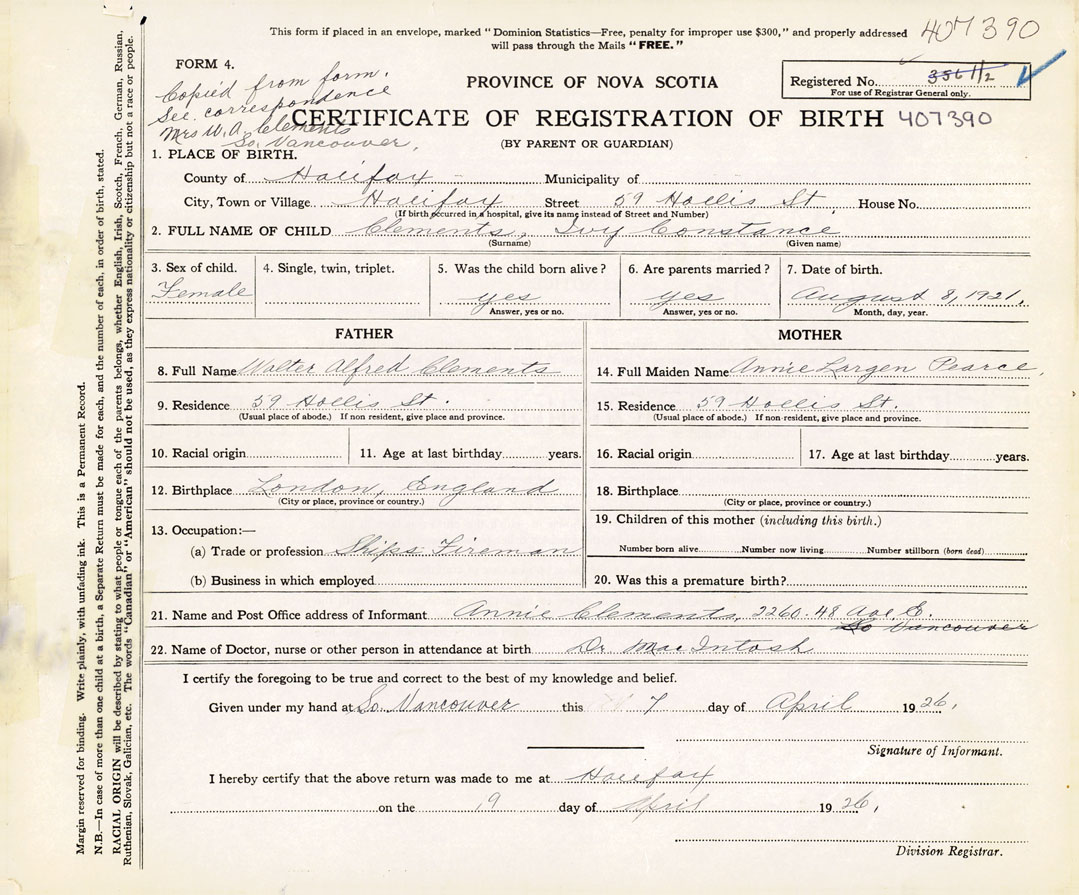 This form if placed in an envelope, marked "Dominion Statistics—Free, penalty for improper use $300," and properly addressed
will pass through the Mails "FREE."
407390
FORM 4.
Copied from form.
See correspondence
Mrs W. A. Clements
So. Vancouver.
PROVINCE OF NOVA SCOTIA
Registered No.
For use of Registrar General only.
CERTIFICATE OF REGISTRATION OF BIRTH 407390
(BY PARENT OR GUARDIAN)
1. PLACE OF BIRTH.
County of Halifax Municipality of
City, Town or Village Halifax Street 59 Hollis St. House No.
(If birth occurred in a hospital, give its name instead of Street and Number)
2. FULL NAME OF CHILD Clements, Ivy Constance
(Surname) (Given name)
3. Sex of child. 4. Single, twin, triplet. 5. Was the child born alive? 6. Are parents married? 7. Date of birth.
Female yes yes August 8, 1921.
Answer, yes or no. Answer, yes or no. Month, day, year.
FATHER MOTHER
8. Full Name Walter Alfred Clements 14. Full Maiden Name Annie Largen Pearce.
9. Residence 59 Hollis St. 15. Residence 59 Hollis St.
(Usual place of abode.) If non resident, give place and province. (Usual place of abode.) If non-resident, give place and province.
10. Racial origin 11. Age at last birthday years. 16. Racial origin 17. Age at last birthday years.
12. Birthplace London, England 18. Birthplace
(City or place, province or country.) (City or place, province or country.)
13. Occupation:— 19. Children of this mother (including this birth.)
(a) Trade or profession Ships Fireman Number born alive Number now living Number stillborn (born dead)
(b) Business in which employed 20. Was this a premature birth?
21. Name and Post Office address of Informant Annie Clements, 2260-48 Ave E.
So Vancouver
22. Name of Doctor, nurse or other person in attendance at birth Dr. MacIntosh
I certify the foregoing to be true and correct to the best of my knowledge and belief.
Given under my hand at So. Vancouver this 7 day of April 1926.
Signature of Informant.
I hereby certify that the above return was made to me at Halifax
on the 19 day of April 1926.
Division Registrar.
Margin reserved for binding. Write plainly, with unfading ink. This is a Permanent Record.
N.B.—In case of more than one child at a birth, a Separate Return must be made for each, and the number of each, in order of birth, stated.
RACIAL ORIGIN will be described by stating to what people or tongue each of the parents belongs, whether English, Irish, Scotch, French, German, Russian,
Ruthenian, Slovak, Galician, etc. The words "Canadian" or "American" should not be used, as they express nationality or citizenship but not a race or people.